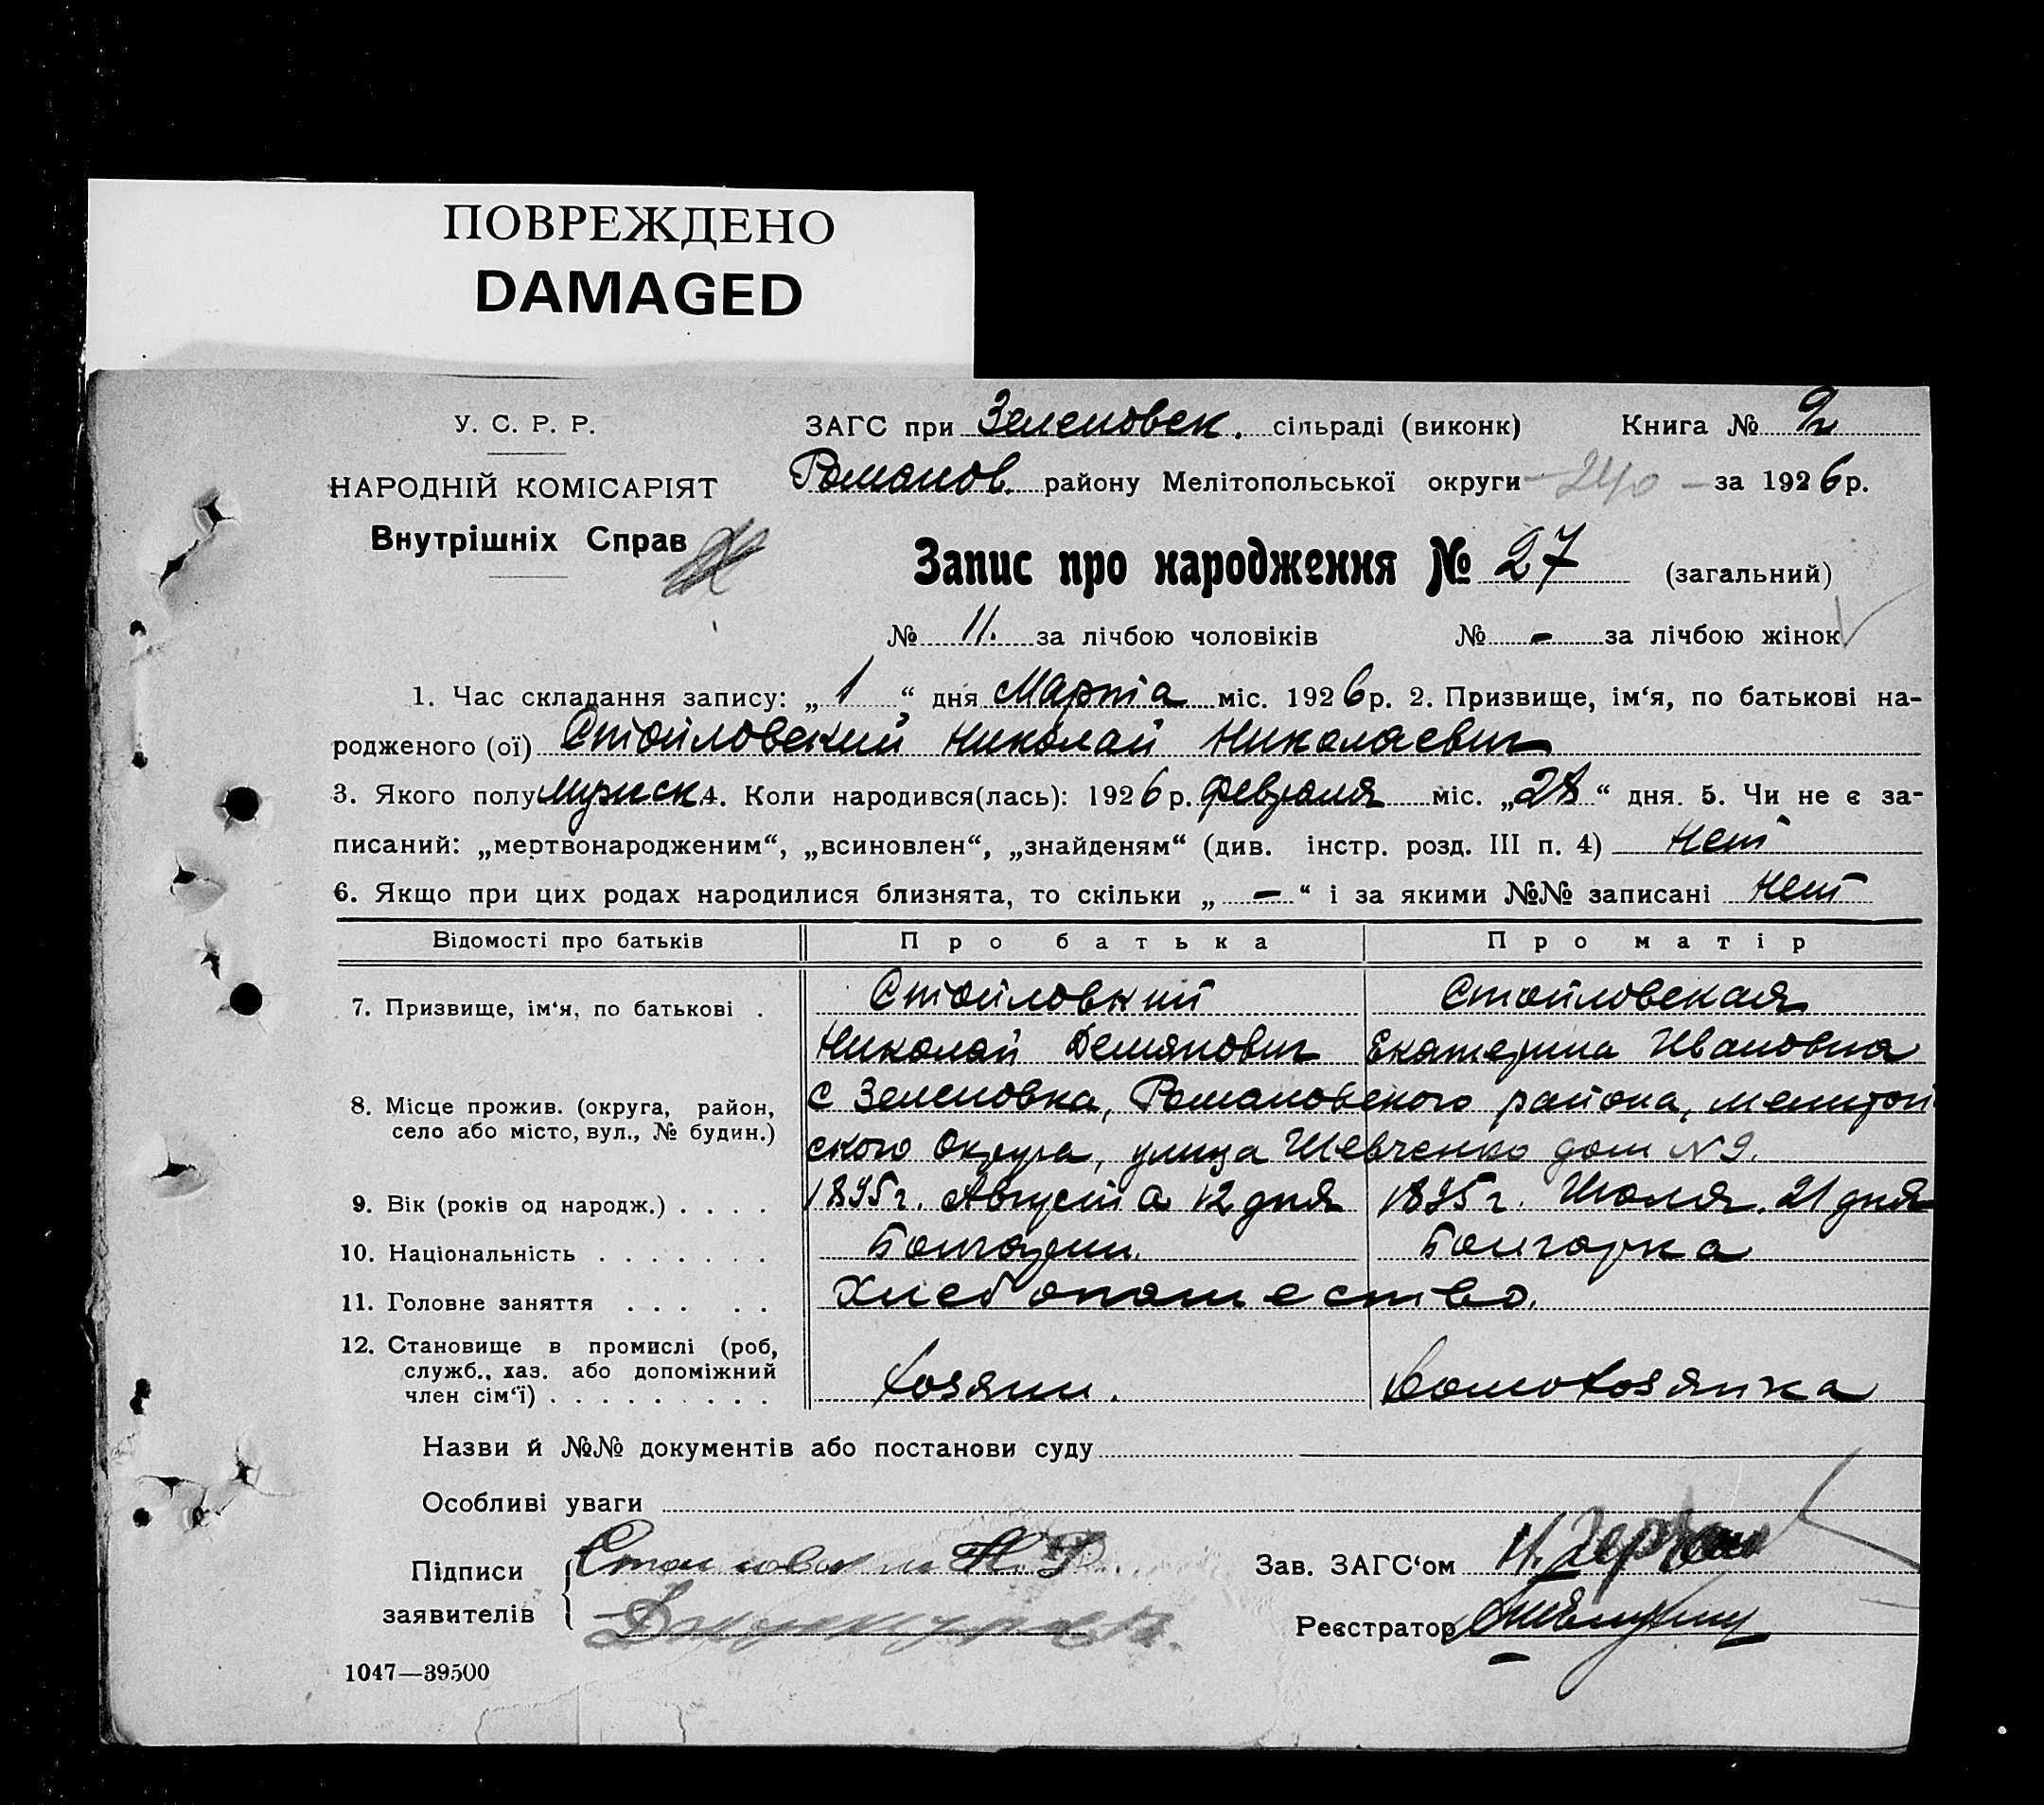 ПОВРЕЖДЕНО
DAMAGED
У. С. Р. Р.
НАРОДНІЙ КОМІСАРІЯТ
Внутрішніх Справ
ЗАГС при Зеленовск. сільраді (виконк) Книга №
Романов. району Мелітопольської округи - 240 - за 1926 р.
Запис про народження № 27 (загальний)
№ 11. за лічбою чоловіків № - за лічбою жінок
1. Час складання запису: „ 1 “ дня Марта міс. 1926 р. 2. Призвище, ім‘я, по батькові на-
родженого (ої) Стойловский Николай Николаевич
3. Якого полу мужск. 4. Коли народився(лась): 1926 р. февраля міс. „28“ дня. 5. Чи не є за-
писаний: „мертвонародженим“, „всиновлен“, „знайденям“ (див. інстр. розд. III п. 4) Нет
6. Якщо при цих родах народилися близнята, то скільки „ - “ і за якими №№ записані Нет
Відомості про батьків Про батька Про матір
7. Призвище, ім‘я, по батькові . Стойловкий Стойловская
Николай Демянович Екатерина Ивановна
8. Місце прожив. (округа, район, село або місто, вул., № будин.) с Зеленовка, Романовского района, мелитоп
ского Округа, улица Шевченко дом №9.
9. Вік (років од народж.) . . . . 1895 г. Августа 12 дня 1895 г. Июля. 21 дня
10. Національність . . . . . . . Болгарин. Болгарка
11. Головне заняття . . . . . Хлебопашество.
12. Становище в промислі (роб, служб., хаз. або допоміжний член сім‘ї) . . . . . . . . . Хозяин. Домохозяйка
Назви й №№ документів або постанови суду
Особливі уваги
Підписи
заявителів
Зав. ЗАГС‘ом
Реєстратор
1047—39500